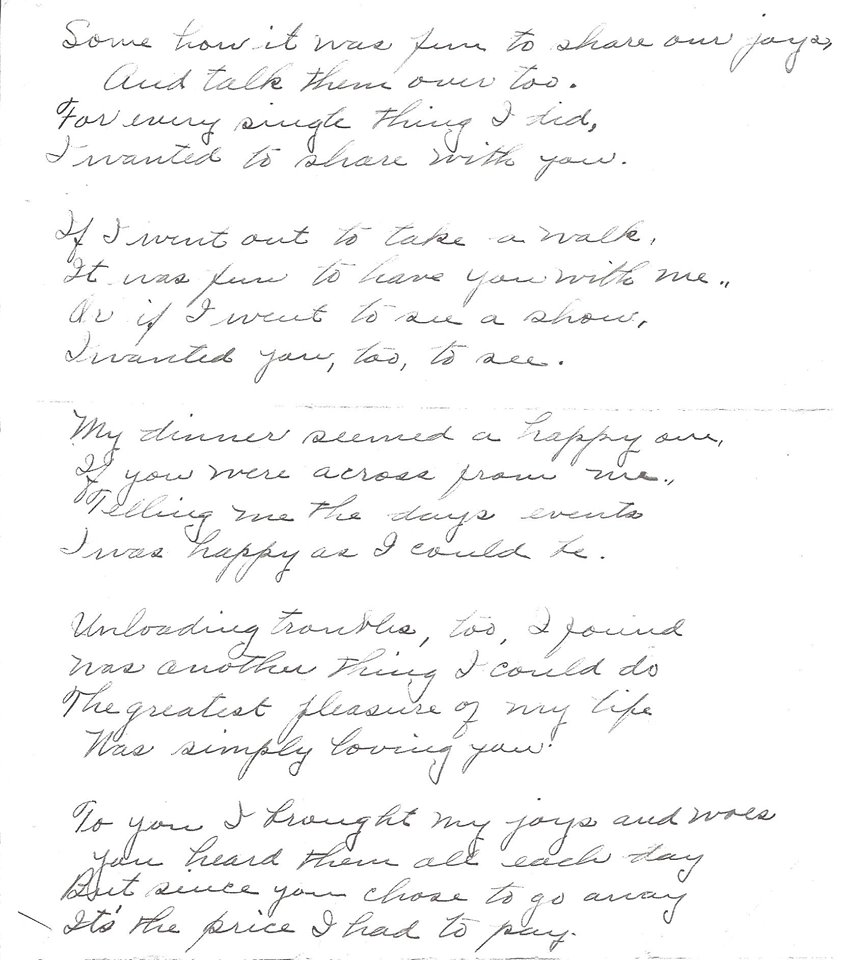 Some how it was fun to share our joys,
And talk them over too.
For every single thing I did,
I wanted to share with you.
If I went out to take a walk,
It was fun to have you with me..
Or if I went to see a show,
I wanted you, too, to see.
My dinner seemed a happy one,
If you were across from me.,
Telling me the days events
I was happy as I could be.
Unloading troubles, too, I found
Was another thing I could do
The greatest pleasure of my life
Was simply loving you.
To you I brought my joys and woes
you heard them all each day
But since you chose to go away
It's the price I had to pay.